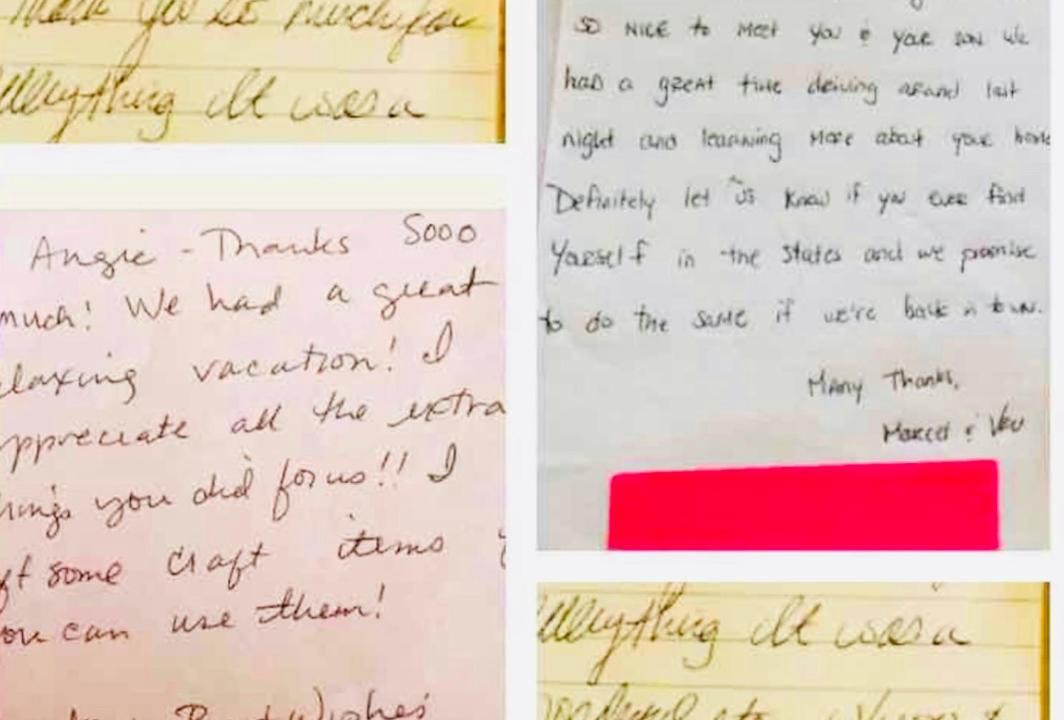 Thank you so much for
Everything It was a
Angie - Thanks Sooo
much! We had a great
elaxing vacation! I
appreciate all the extra
hings you did for us!! I
ft some craft items
you can use them!
Best Wishes
SO NICE to MEET you & your son We
had a great time driving around last
night and learning More about your home
Definitely let us know if you ever find
Yourself in the States and we promise
to do the same if we're back in town.
Many Thanks,
Marcel &
Everything It was a